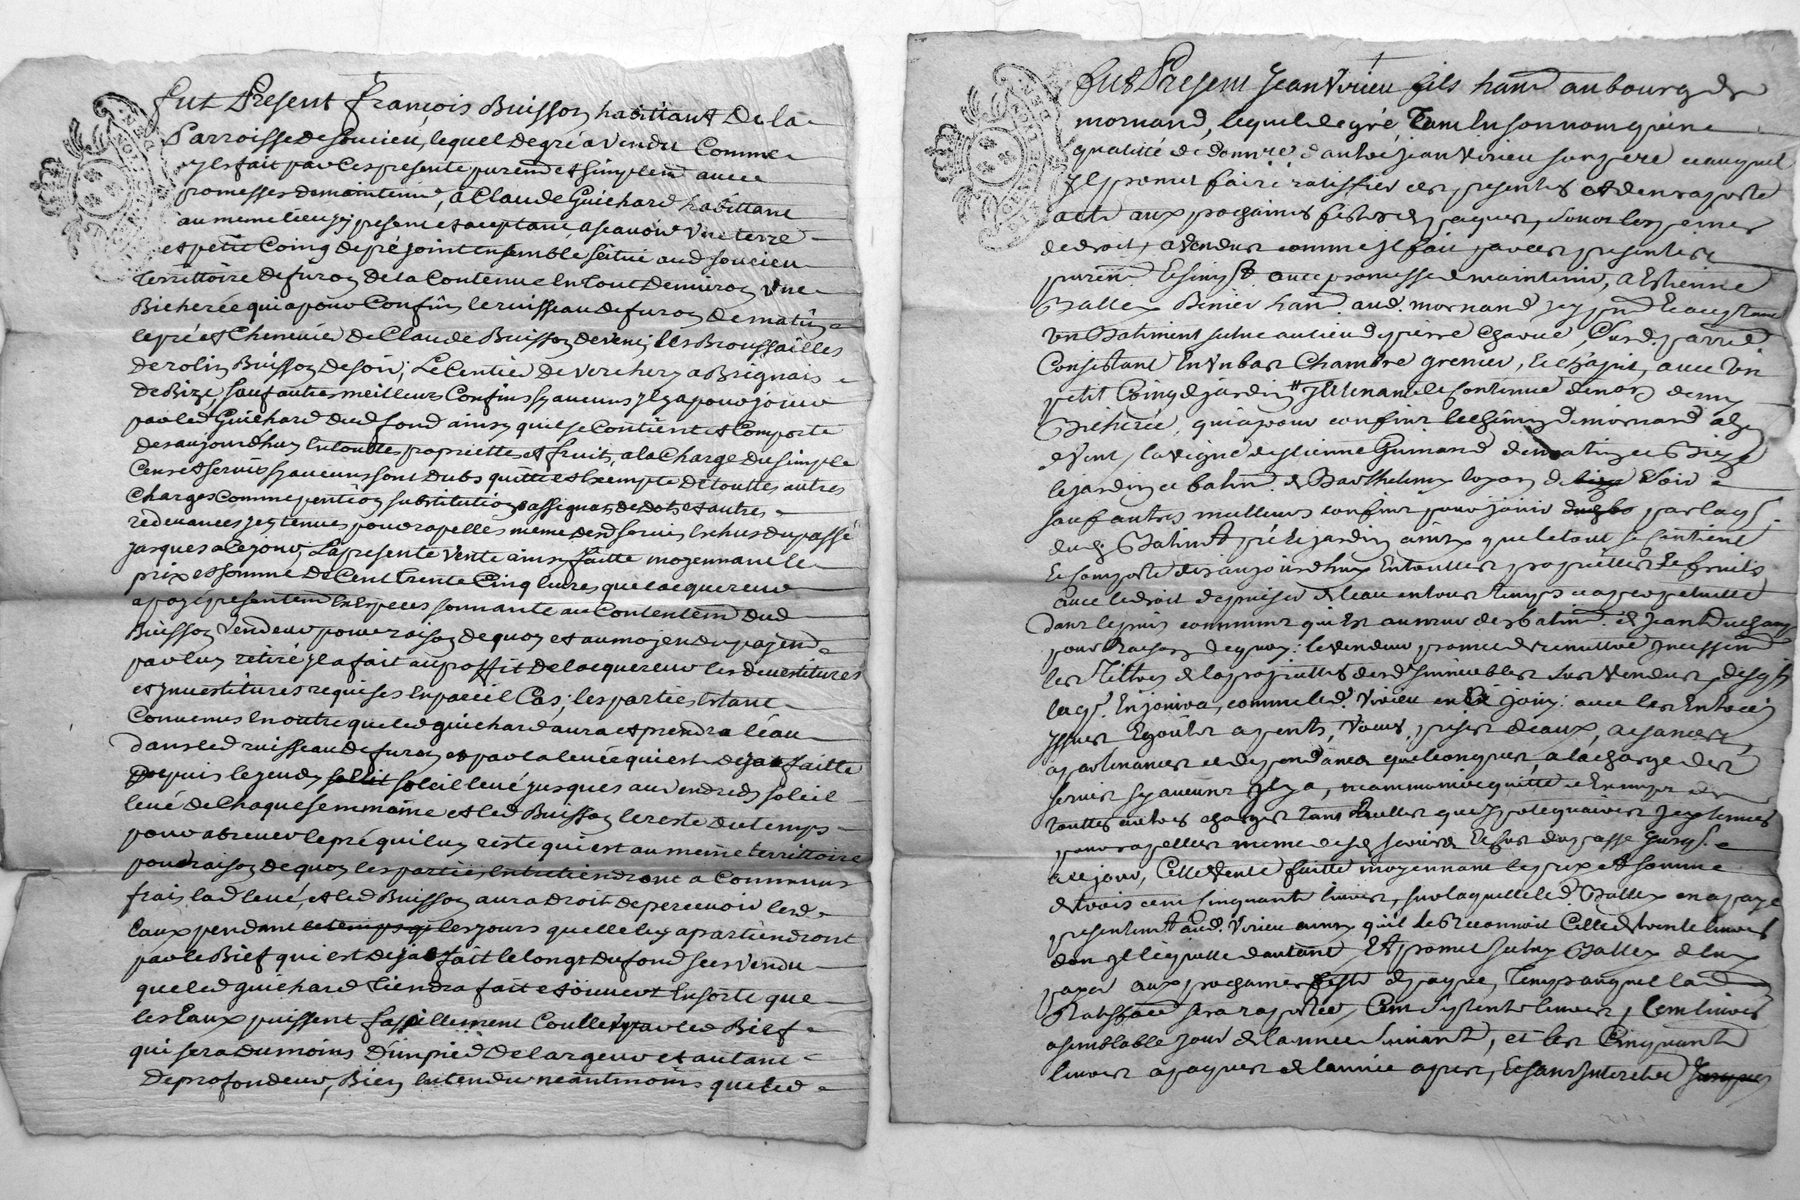 fut Present françois Buisson habittant de la
Parroisse de soucieu, lequel de gré a vendu comme
il fait par ces presente purem̃ et simplem̃ avec
promesses de maintenir, a Claude Guichard habittant
au meme lieu icy present et aceptant, asçavoir une terre
et petit Coing de pré joint ensemble scitué aud soucieu
territtoire de furon de la Contenue en tout demiron une
Bicherée qui a pour Confin le ruisseau de furon de matin
le pré et Cheneviér de Claude Buisson de vent; les Broussailles
de rolin Buisson de soir; Le Centier de verchery a Brignais
de Bize, sauf autres meilleurs Confins sy aucuns il y a pour jouir
par led Guichard dud fond ainsy quil se Contient et Comporte
des aujourd'huy en touttes proprietté et fruits, a la Charge du simple
Cens et servis sy aucuns sont dubs quitte et Exempte de touttes autres
Charges comme pention substitution assignat de dots et autres
redevances icy tenues pour rapellés meme desd servis Echus du passé
jusques a ce jour, La presente vente ainsy faitte moyennant le
prix et somme de Cent trente Cinq livres que lacquereur
a payé presentem̃ en Especes sonnante au Contentem̃ dud
Buisson vendeur pour raison de quoy et au moyen du payem̃
par luy retiré il a fait au proffit de lacquereur les devestitures
et investitures requises en pareil Cas; les parties Estant
Convenus en outre que led guichard aura et prendra l'éau
dans led ruisseau de furon et par la levée qui est dejat faitte
Depuis le jeudy soleil levé jusques au vendredy soleil
levé de Chaque semmaine et led Buisson le reste du temps
pour abreuver le pré qui luy reste qui est au meme territtoire
pour raison de quoy les parties Entretiendront a Communs
frais lad levé, et led Buisson aura droit de percevoir lesd
Eaux pendant le temps qe les jours quelle luy apartiendront
par le Bief qui est dejat fait le long du fond sus vendu
que led guichard tiendra fait et ouvert Ensorte que
les Eaux puissent fassillement Couller par led Bief
qui sera du moins d'un pied de largeur et autant
de profondeur, Bien entendu neantmoins que led
fut Present Jean Virieu fils han̄t au bourg de
mornand, lequel de gré, Tant en son nom qu'en
qualitté de d'autre Jean Virieu son pere auquel
il promet faire ratiffier ces presentes et den raporte
acte aux prochaines festes de paques, sous les peines
de droit, a vendu comme il fait par ces presentes
purem̃ et simpt avec promesse de maintenir, a Estienne
Ballex han̄t aud mornand icy pnt et aceptant
un Batiment situé au lieu de pierre
Consistant En un bas Chambre grenier, avec un
petit Coing de jardin Contenue denviron demy
Bicherée, qui a pour confins le chemin de mornand a
de vent, la vigne destienne Guinand de matin et Bize
le jardin et batim̃ de Barthelemy de soir
sauf autres meilleurs confins pour jouir par lacq.
dud Batimt pré et jardin ainsy que le tout se Contient
Et Comporte des aujourd'huy En touttes proprietter Et fruits
avec le droit de puiser de l'eau en tous temps et a perpetuitté
dans le puis commun qui Est au
pour Raison de quoy: le vendeur promet de remettre
les Tittres de la propriettés desd immeubles sus vendus, desqls
lacqr En jouira, comme led Virieu en a joüy: avec les Entrées
issues Egoûts a pents, veues, prises deaux, aisances,
apartenances et dependances quelconques, a la charge des
servis sy aucuns il y a, neammoins quitte et Exempt de
touttes autres charges tant reelles que hypotequaires icy tenues
pour rapellés meme desd servis Echus du passé jusqs
a ce jour, Cette vente faitte moyennant le prix et somme
de trois cent Cinquante livres, sur laquelle led Ballex en a payé
presentemt aud Virieu ainsy quil le Reconnoit Celle de trente livres
dont il lequitte dautant, Et promet led Ballex de luy
payer aux prochaines feste de paque, temps auquel lad
Ratiffion sera raportée Cent septente livres, Cent livres
a semblable jour de lannée suivant, et les Cinquante
livres a paques de lannée apres, Et sans interetst jusques